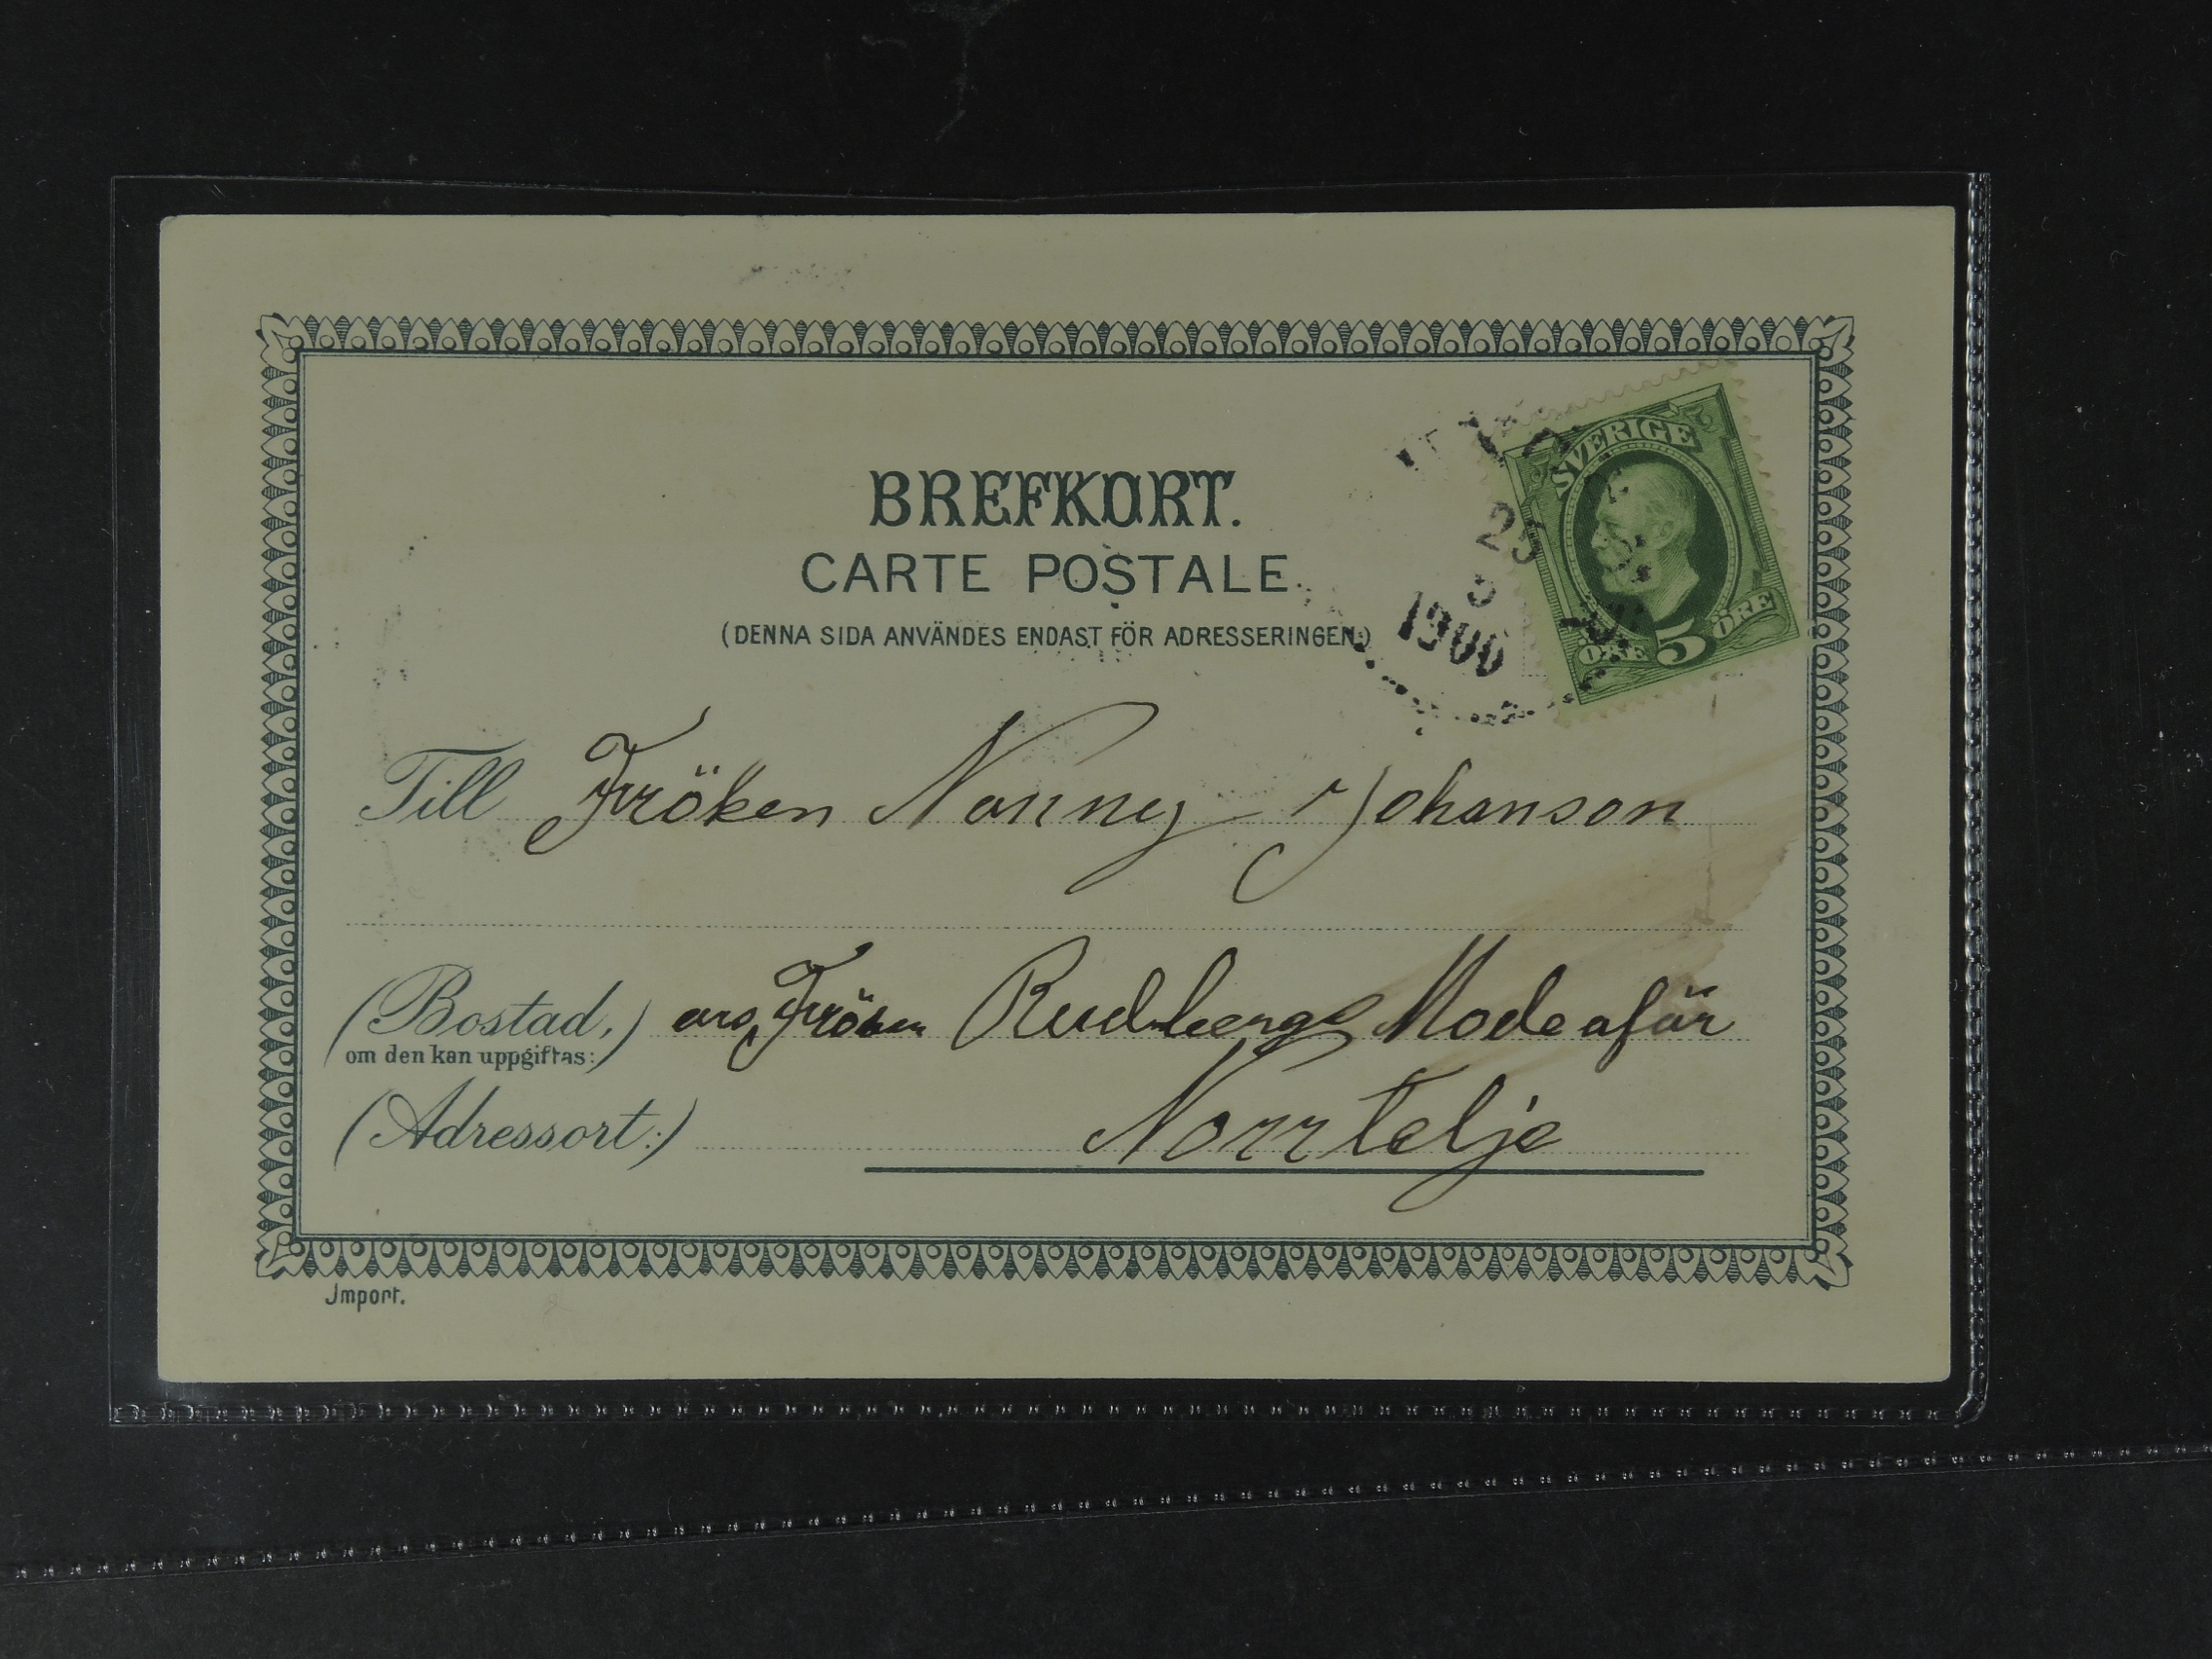 BREFKORT.
CARTE POSTALE.
(DENNA SIDA ANVÄNDES ENDAST FÖR ADRESSERINGEN.)
SVERIGE
ÖRE 5 ÖRE
25
5
1900
Till Fröken Nanny Johanson
(Bostad,) Fröken Rudbergs Modeafär
om den kan uppgiftas:
(Adressort:) Norrtelje
Import.